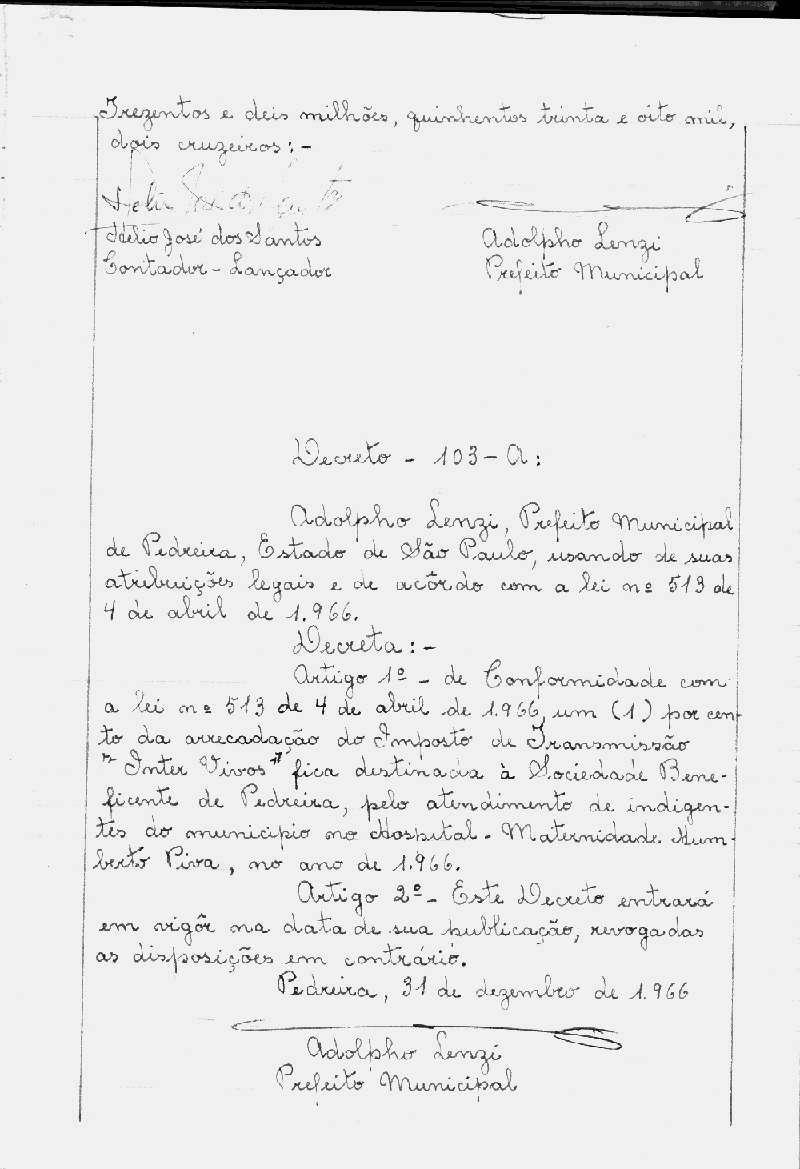 Trezentos e deis milhões, quinhentos trinta e oito mil,
dois cruzeiros:-
Hélio José dos Santos
Contador - Lançador
Adolpho Lenzi
Prefeito Municipal
Decreto - 103-A:
Adolpho Lenzi, Prefeito Municipal
de Pedreira, Estado de São Paulo, usando de suas
atribuições legais e de acôrdo com a lei nº 513 de
4 de abril de 1.966.
Decreta:-
Artigo 1º - de Conformidade com
a lei nº 513 de 4 de abril de 1.966, um (1) por cen-
to da arrecadação do Imposto de Transmissão
"Inter Vivos" fica destinada à Sociedade Bene-
ficente de Pedreira, pelo atendimento de indigen-
tes do município no Hospital - Maternidade Hum-
berto Piva, no ano de 1.966.
Artigo 2º - Este Decreto entrará
em vigôr na data de sua publicação, revogadas
as disposições em contrário.
Pedreira, 31 de dezembro de 1.966
Adolpho Lenzi
Prefeito Municipal